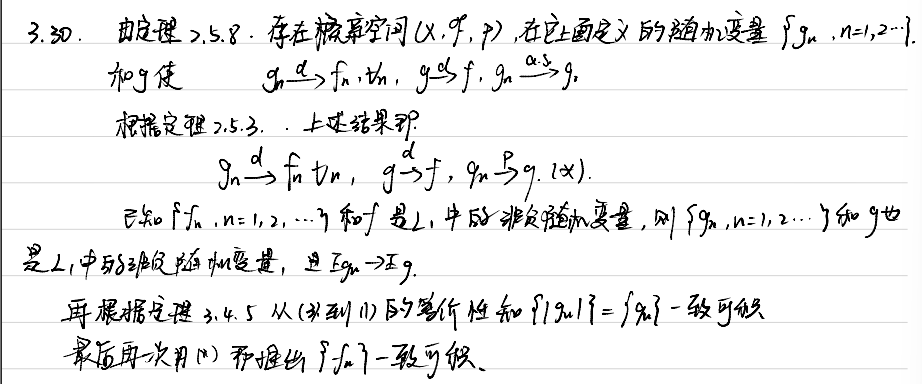 3.30. 由定理2.5.8. 存在概率空间(X,ℱ,P),在它上面定义的随机变量{gₙ,n=1,2…}.
和g使 gₙ →ᵈ fₙ,∀n, g →ᵈ f, gₙ →ᵃ·ˢ· g.
根据定理2.5.3. 上述结果即
gₙ →ᵈ fₙ ∀n, g →ᵈ f, gₙ →ᴾ g. (*).
已知{fₙ,n=1,2,…}和f是L₁中的非负随机变量,则{gₙ,n=1,2…}和g也
是L₁中的非负随机变量,且Egₙ→Eg.
再根据定理3.4.5 从(3)到(1)的等价性知{|gₙ|}={gₙ}一致可积
最后再次用(*) 推出{fₙ}一致可积、